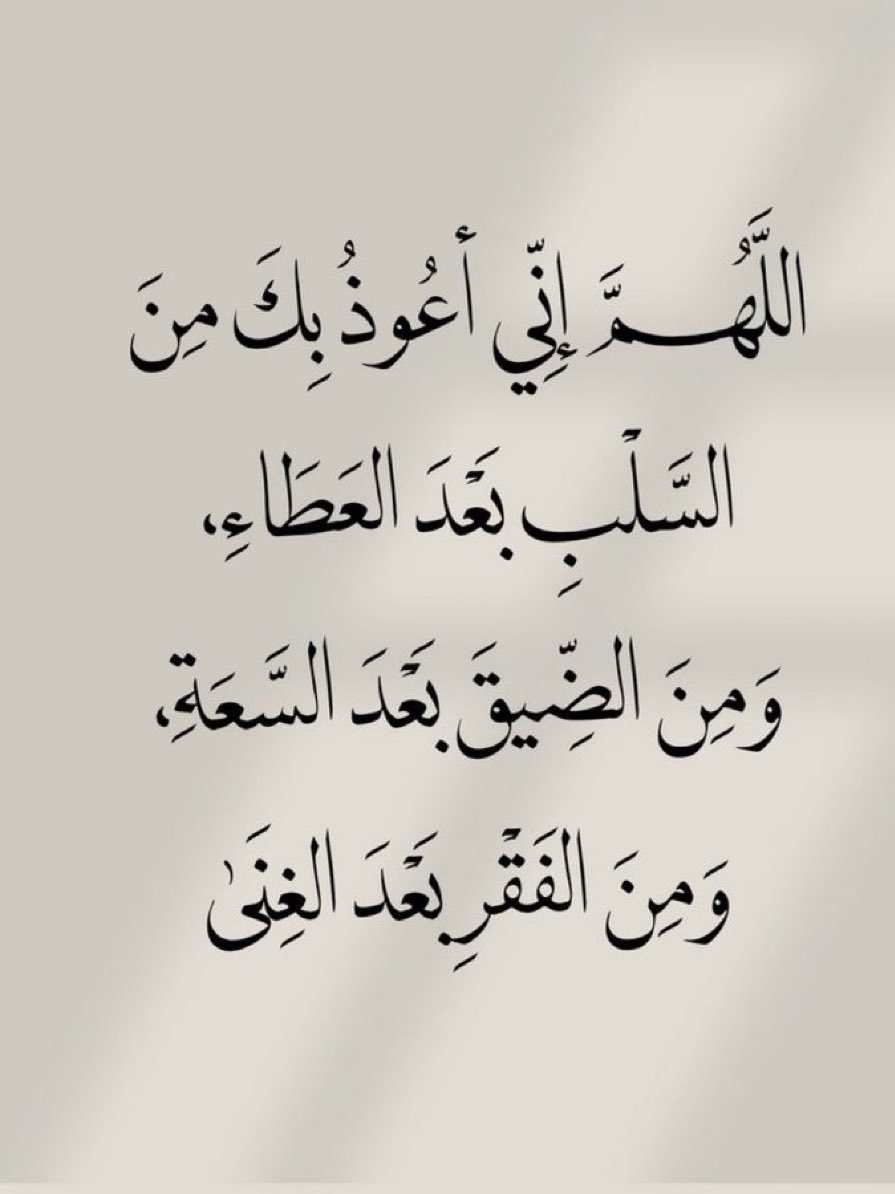 اللَّهُمَّ إِنِّي أَعُوذُ بِكَ مِنَ
السَّلْبِ بَعْدَ العَطَاءِ،
وَمِنَ الضِّيقَ بَعْدَ السَّعَةِ،
وَمِنَ الفَقْرِ بَعْدَ الغِنَىٰ